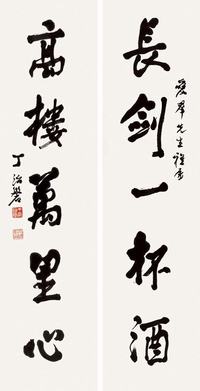 愛羣先生雅屬
長劍一杯酒
高樓萬里心
丁治磐